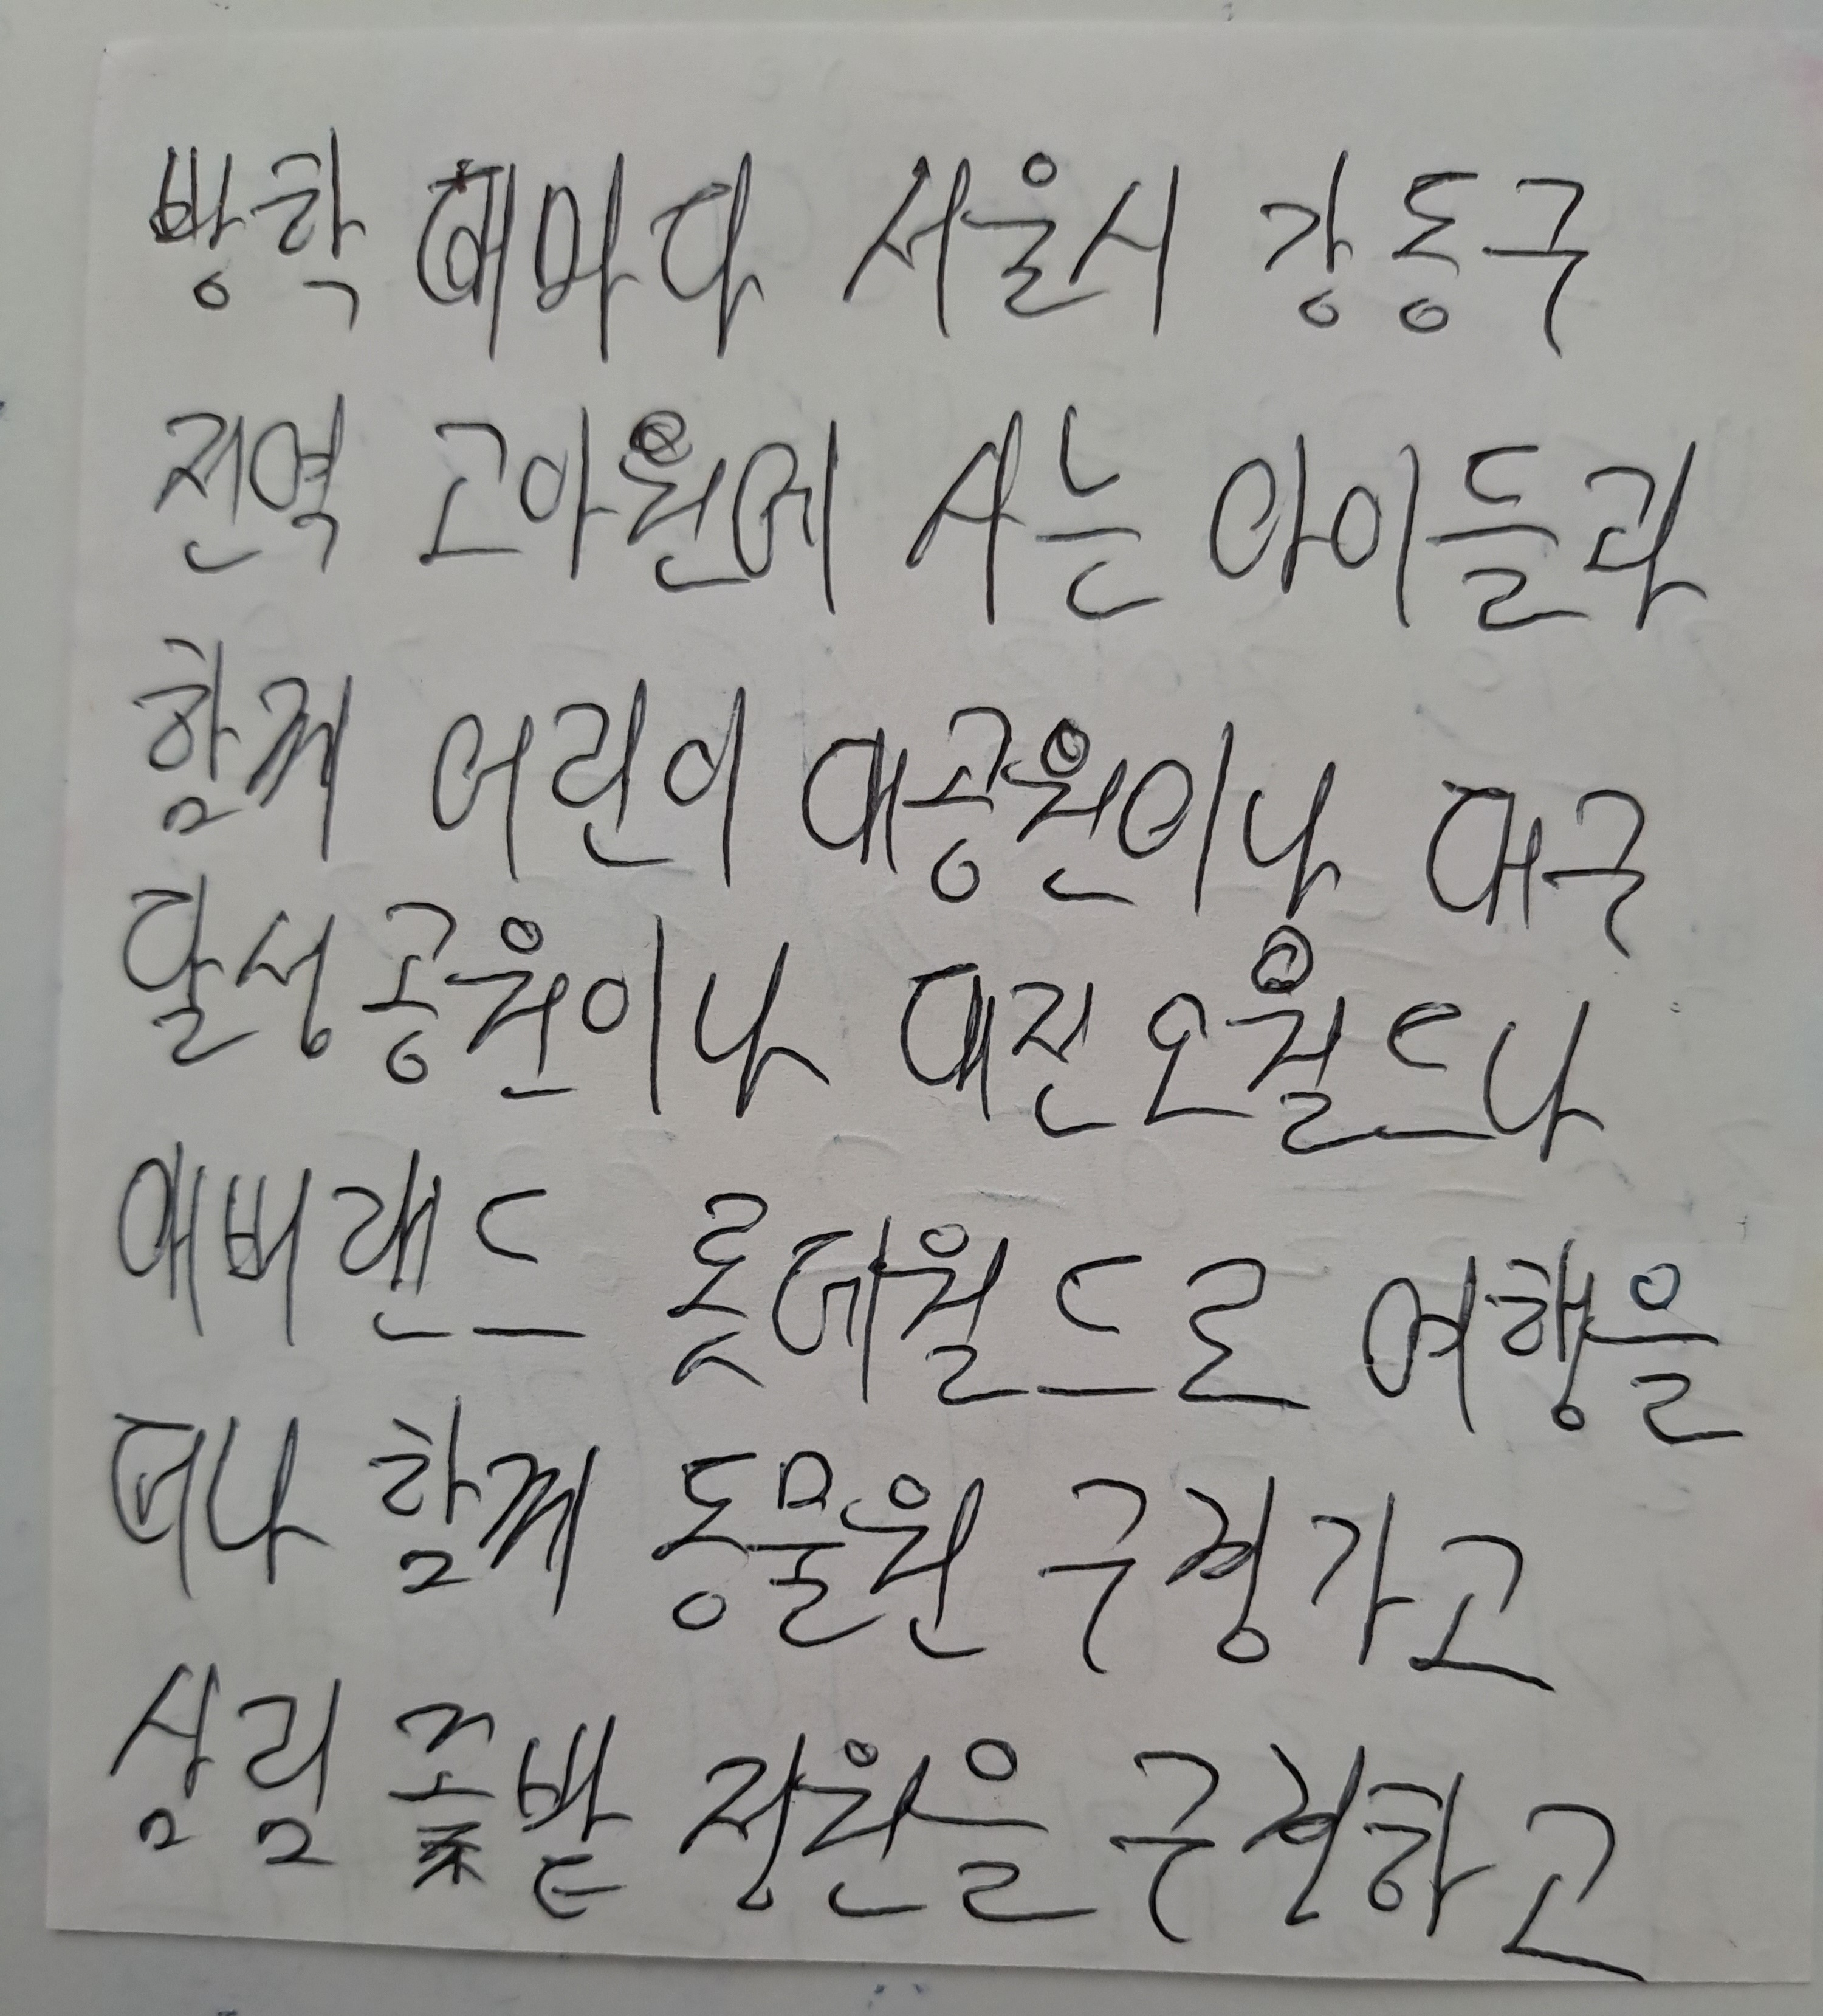 방학 때마다 서울시 강동구
전역 고아원에 사는 아이들과
함께 어린이 대공원이나 대구
달성공원이나 대전오월드나
에버랜드 롯데월드로 여행을
떠나 함께 동물원 구경가고
삼림 꽃밭 정원을 구경하고